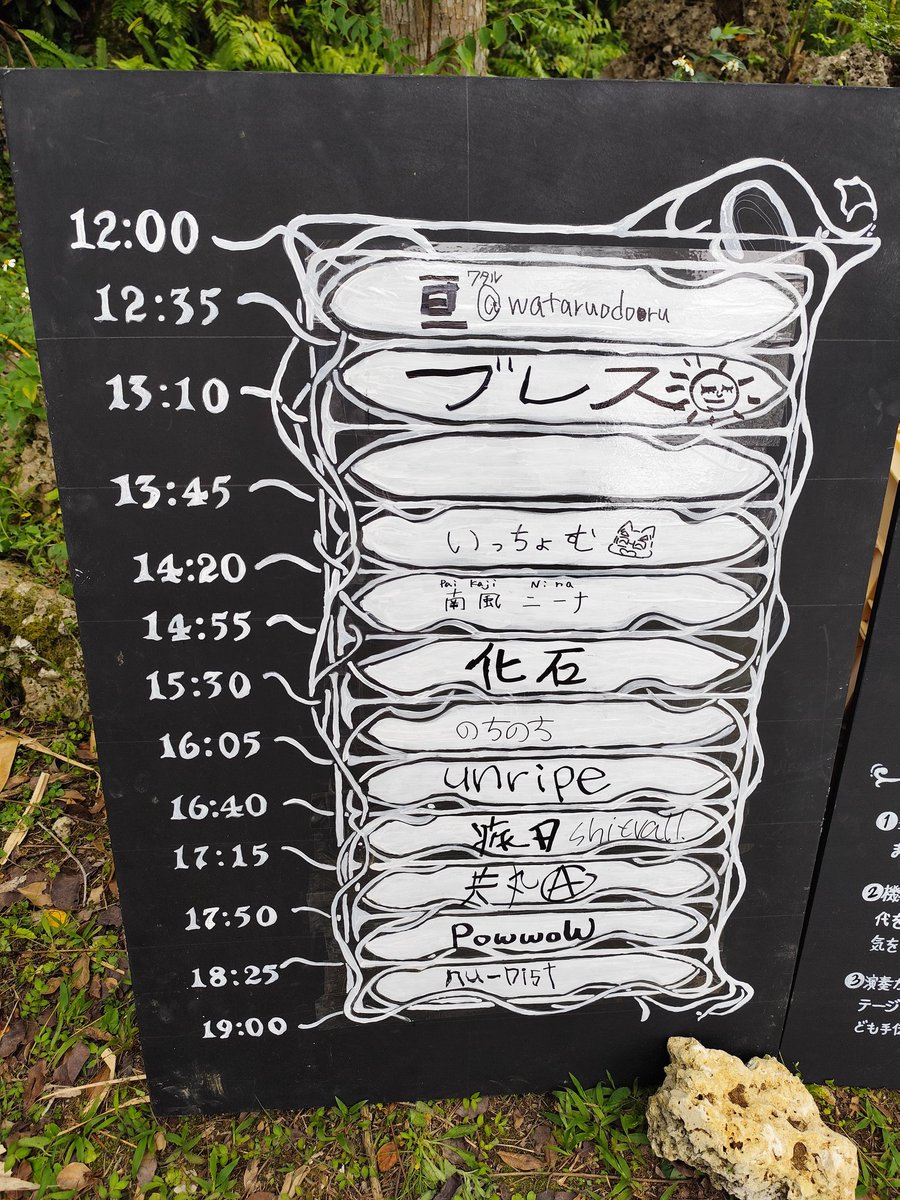 12:00
ワタル
亘 @wataruodoru
12:35
ブレス
13:10
13:45
いっちょむ
14:20
Pai Kaji Nina
南風 ニーナ
14:55
化石
15:30
のちのち
16:05
unripe
16:40
17:15
17:50
PowwoW
18:25
nu-Dist
19:00
❶
ま
❷機
代を
気を
❸演奏
テージ
ども手伝